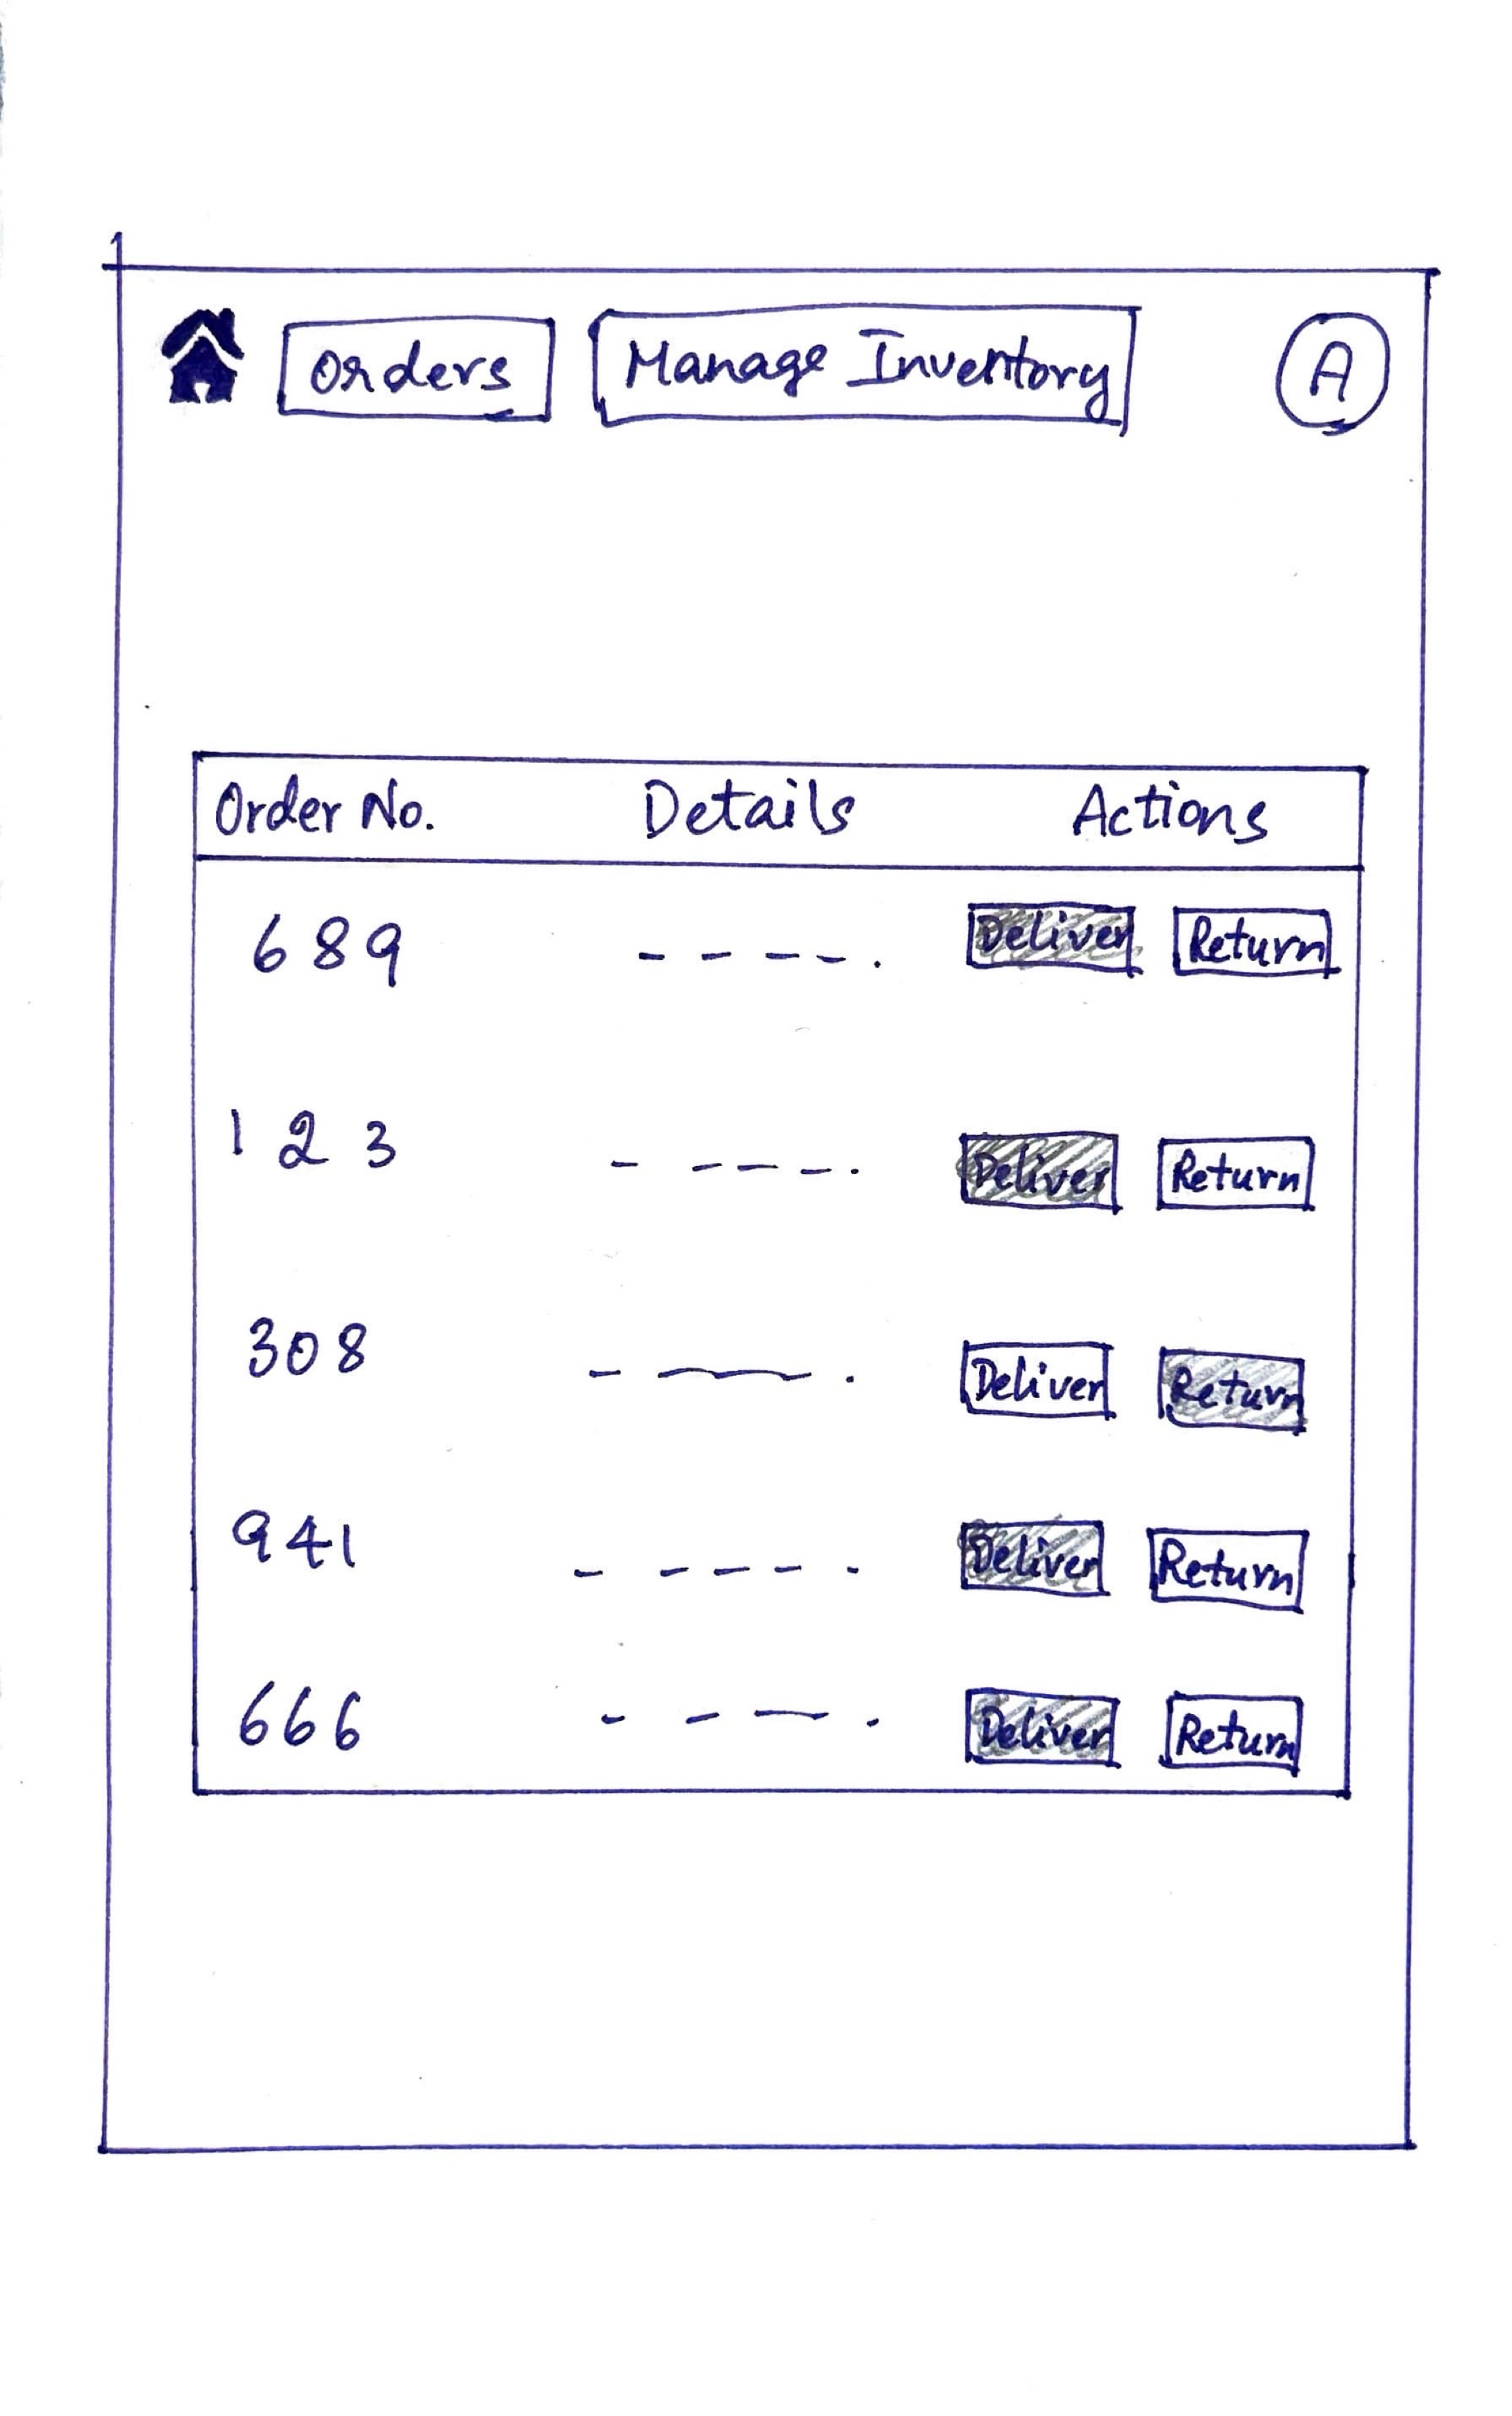 Orders Manage Inventory A
Order No. Details Actions
689 ----. Deliver Return
123 - ---. Deliver Return
308 - —. Deliver Return
941 - ---- . Deliver Return
666 - - — . Deliver Return